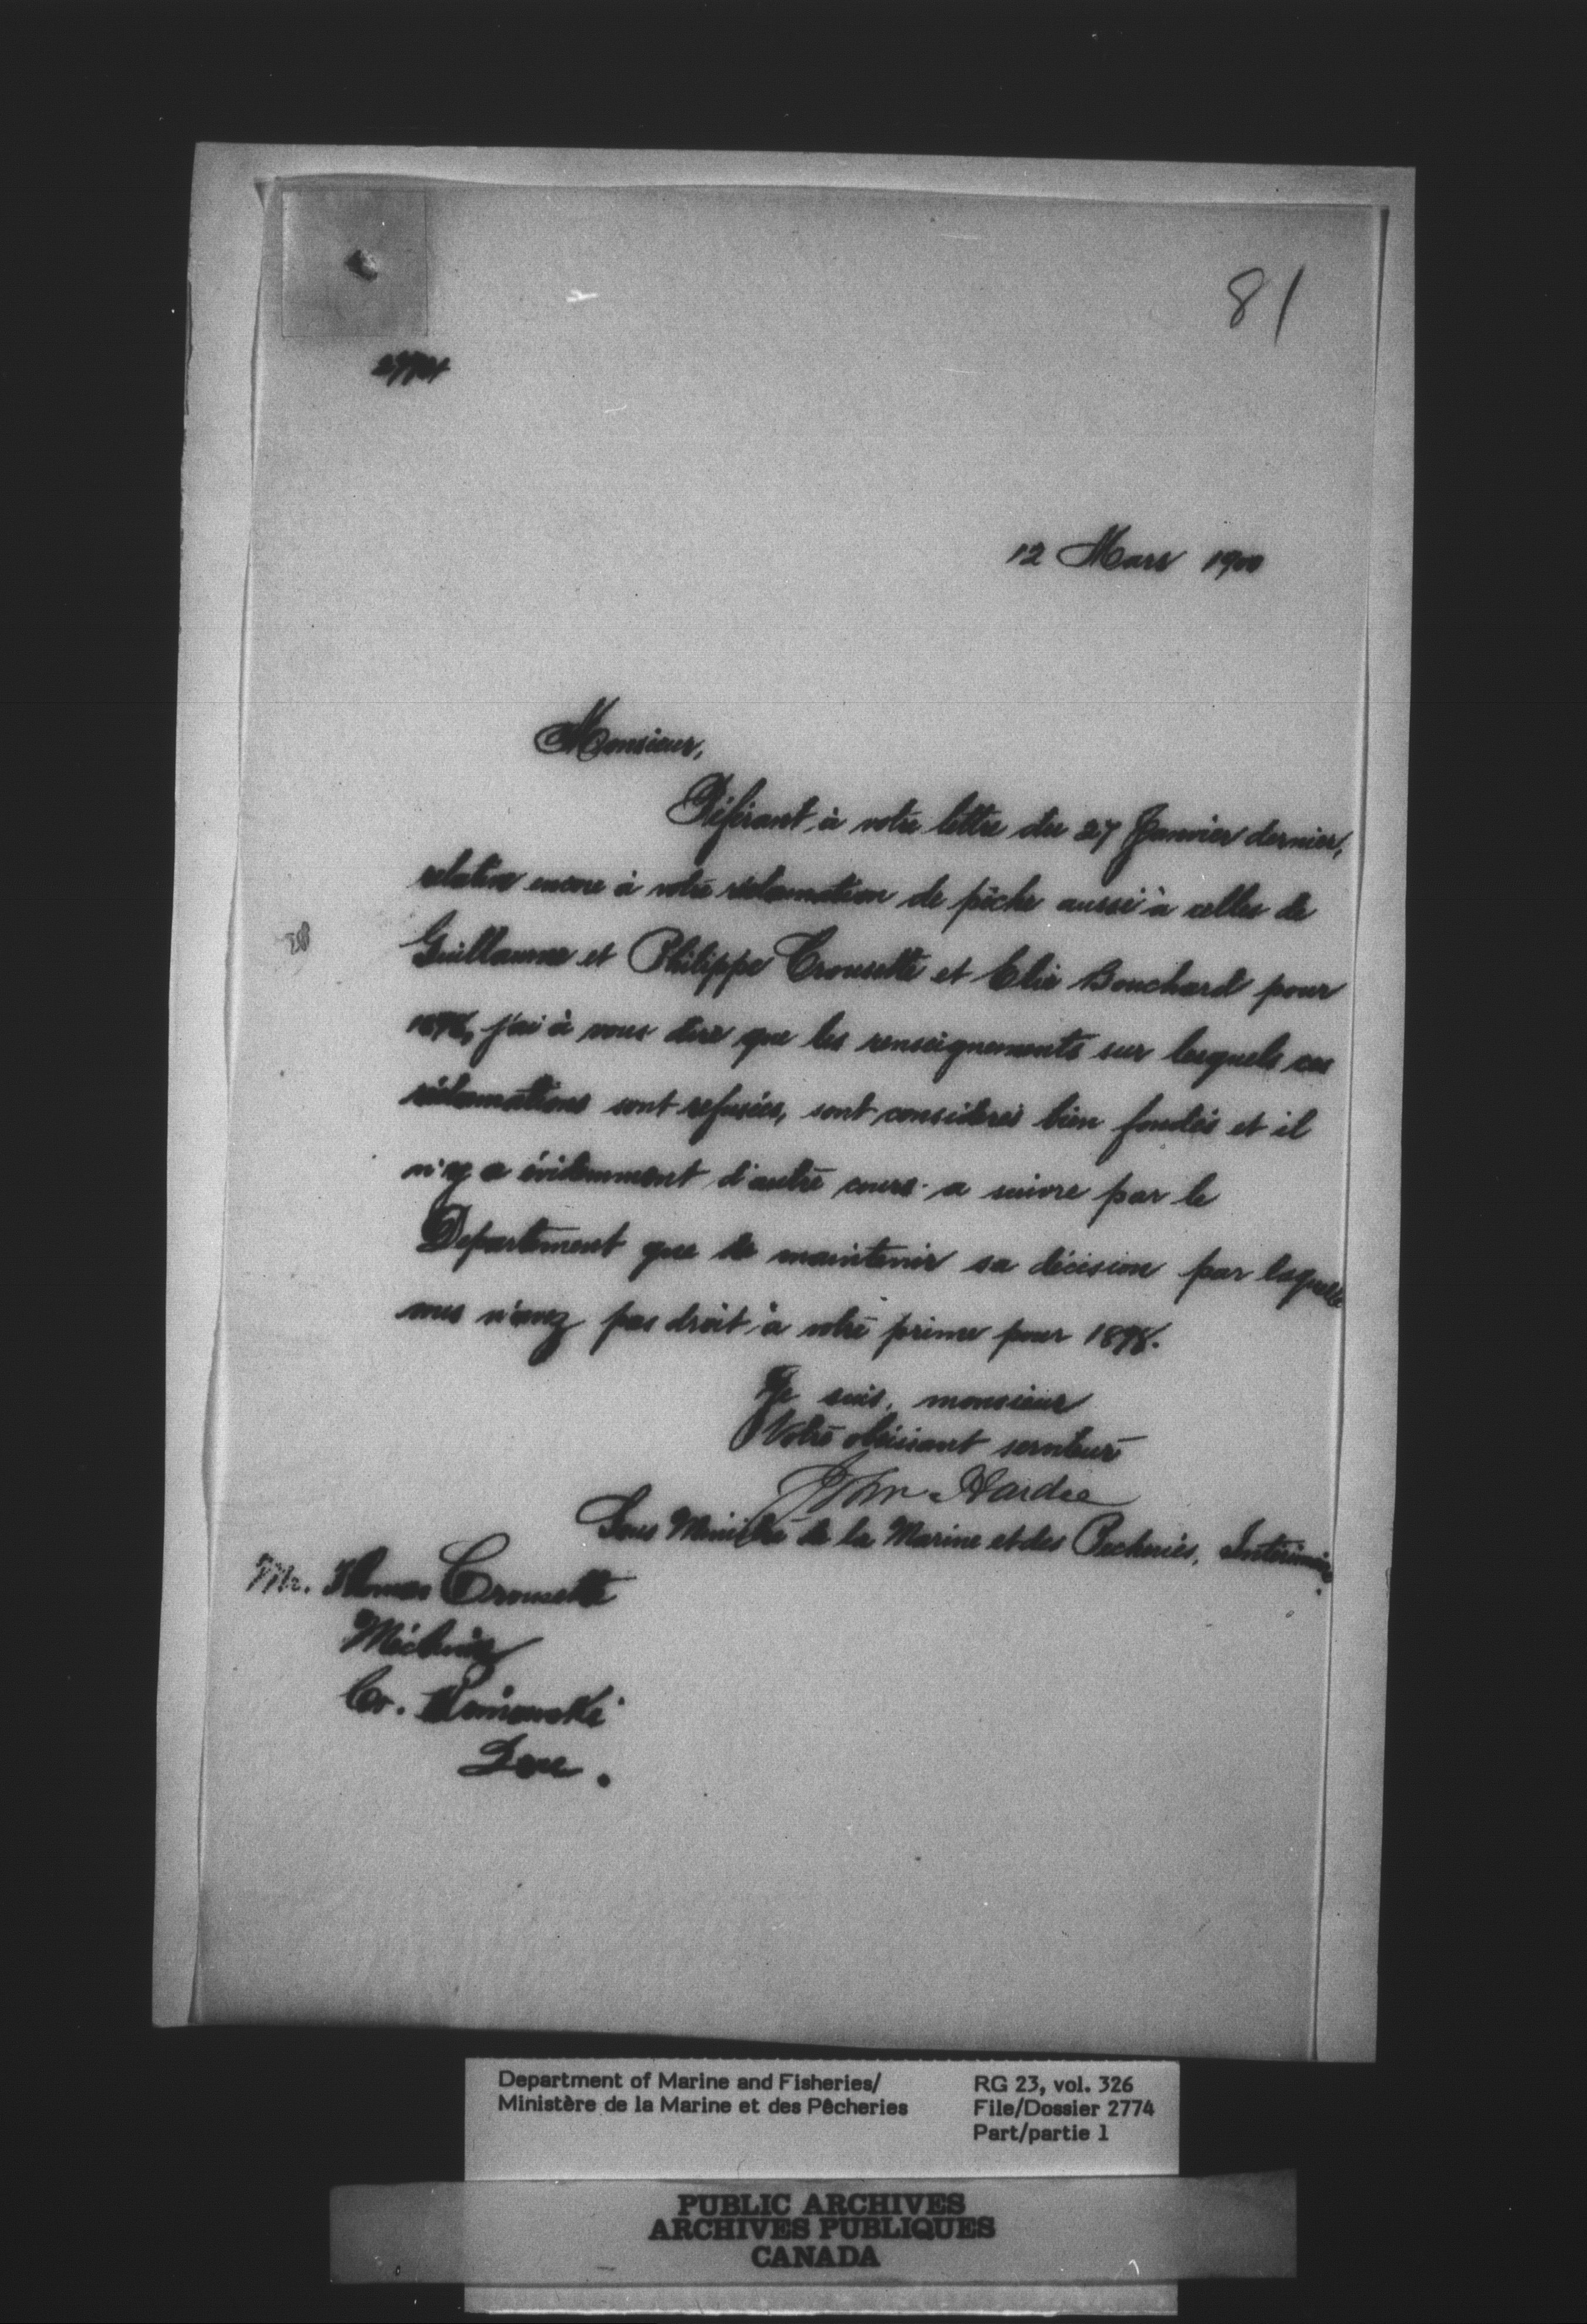 81
2774
12 Mars 1900
Monsieur,
Référant à votre lettre du 27 Janvier dernier,
relative encore à votre réclamation de pêche aussi à celles de
Guillaume et Philippe Crousette et Elie Bouchard pour
1898, j'ai à vous dire que les renseignements sur lesquels ces
réclamations sont refusées, sont considerés bien fondés et il
n'y a évidemment d'autre cours a suivre par le
Departement que de maintenir sa décision par laquelle
vous n'avez pas droit à votre prime pour 1898.
Je suis, monsieur
Votre obéissant serviteur
John Hardie
Sous Ministre de la Marine et des Pecheries, Intérimaire.
Mr. Thomas Crousette
Méchins
Co. Rimouski
Que.
Department of Marine and Fisheries/
Ministère de la Marine et des Pêcheries
RG 23, vol. 326
File/Dossier 2774
Part/partie 1
PUBLIC ARCHIVES
ARCHIVES PUBLIQUES
CANADA